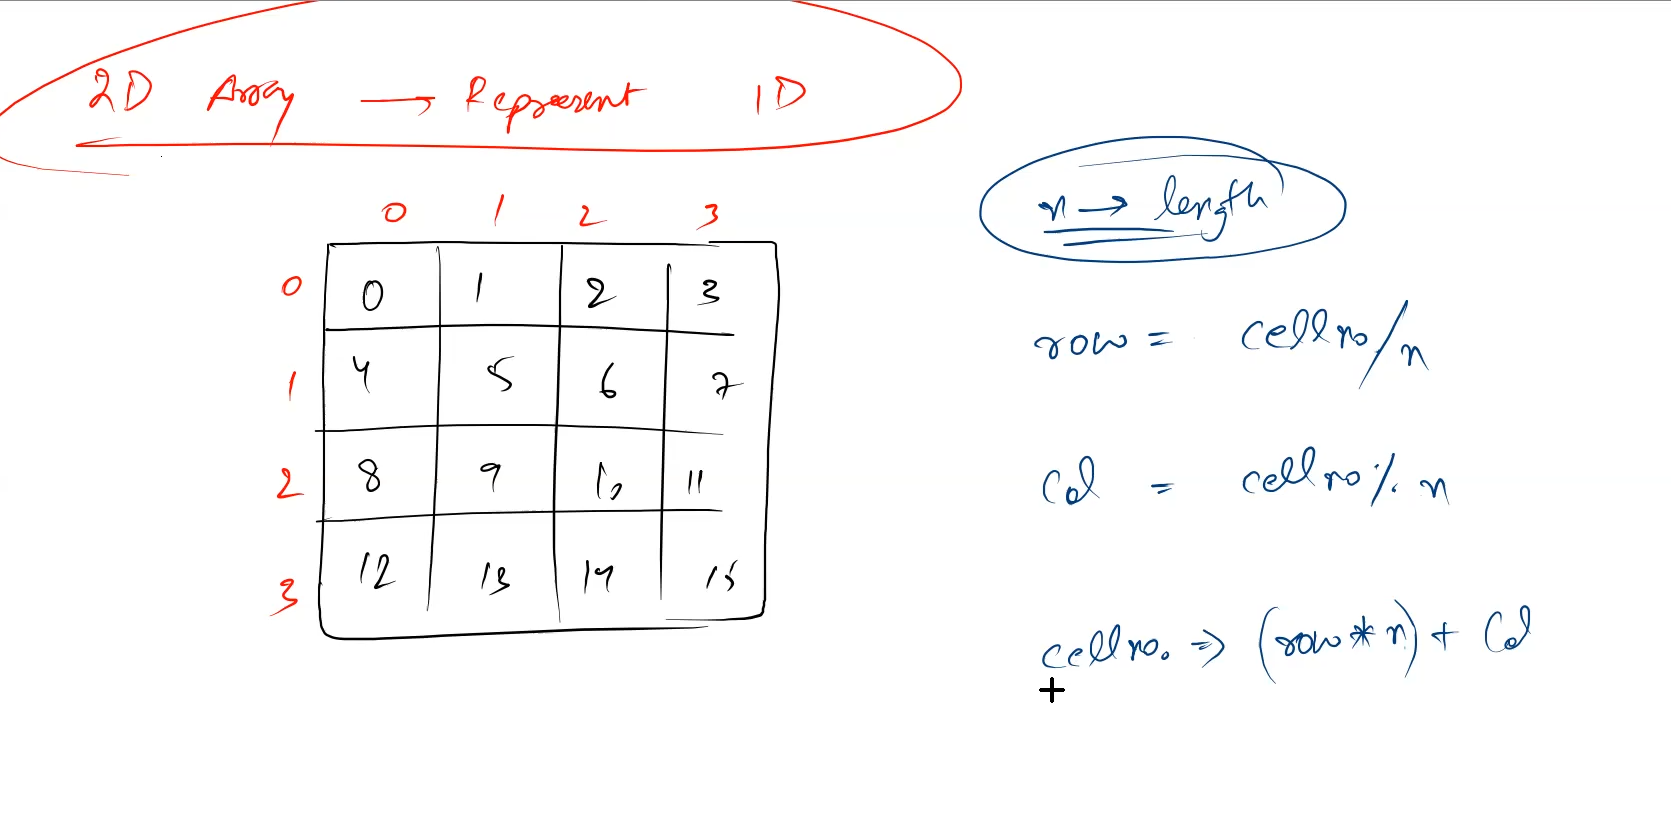 2D Array → Represent 1D
n → length
0 1 2 3
0 0 1 2 3
1 4 5 6 7
2 8 9 10 11
3 12 13 14 15
row = cell no / n
Col = cell no % n
cell no. ⇒ (row * n) + Col